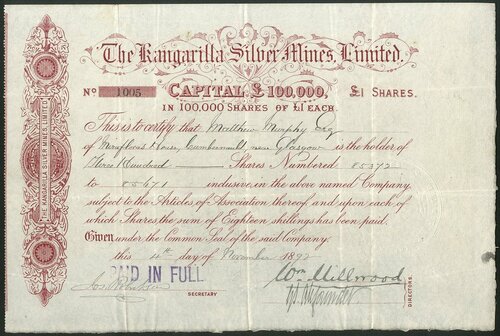 The Kangarilla Silver Mines, Limited.
THE KANGARILLA SILVER MINES, LIMITED
CAPITAL £100,000,
No 1005
£1 SHARES.
IN 100,000 SHARES OF £1 EACH.
This is to certify that Matthew Murphy Esq
of House, Cumbernauld, near Glasgow is the holder of
Three Hundred Shares Numbered 85372
to 85671 inclusive in the above named Company,
subject to the Articles of Association thereof and upon each of
which Shares the sum of Eighteen shillings has been paid.
Given under the Common Seal of the said Company
this 4th day of November 1892
PAID IN FULL
Wm Millwood
SECRETARY
DIRECTORS.